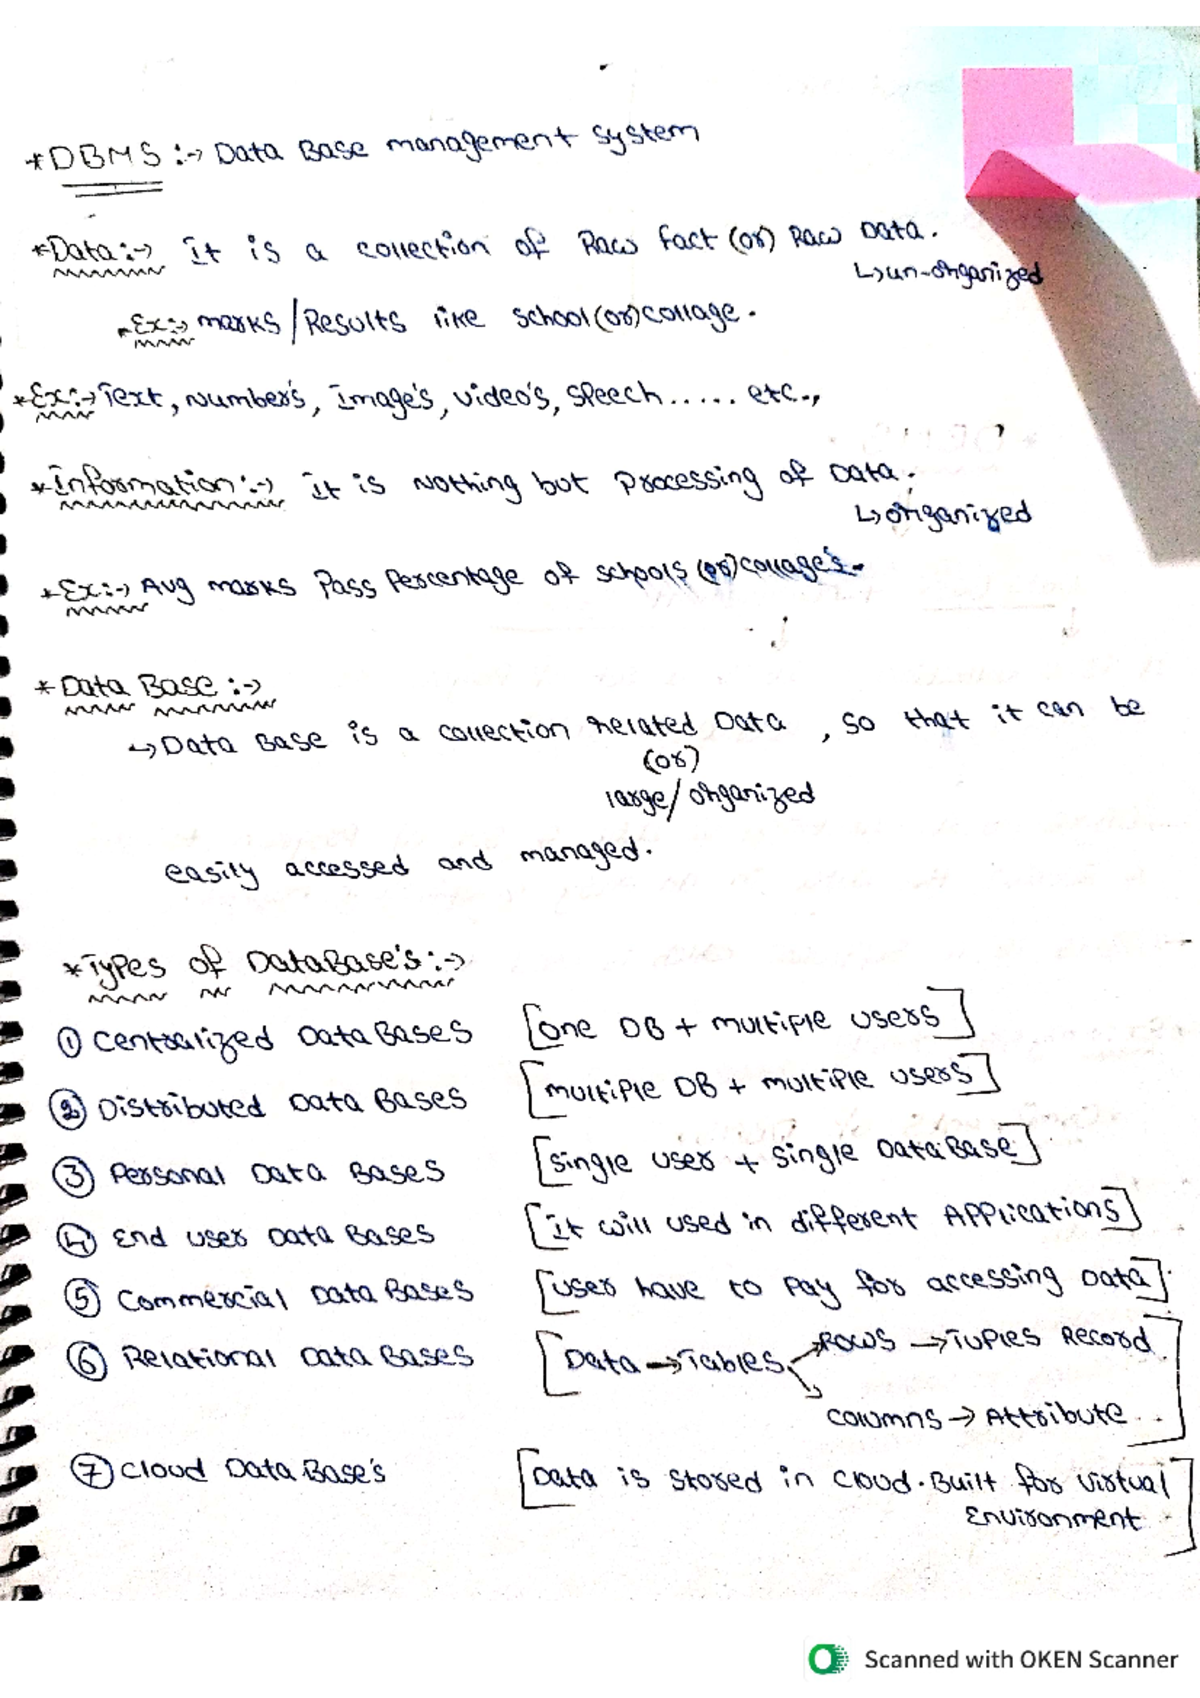 *DBMS :→ Data Base management system
*Data :→ It is a collection of Raw fact (or) Raw Data.
↳un-organized
*Ex:→ marks/Results like school(or)collage.
*Ex:→Text, Numbers's, Image's, video's, speech..... etc.,
*Information:→ It is Nothing but processing of Data.
↳organized
*Ex:→ Avg marks Pass Percentage of schools (or)collage's.
*Data Base :→
↳Data Base is a collection related Data , so that it can be
(or)
large/organized
easily accessed and managed.
*Types of DataBase's:→
① Centralized DataBases [one DB + multiple users]
② Distributed Data Bases [multiple DB + multiple users]
③ Personal Data Bases [single user + single DataBase]
④ End user Data Bases [it will used in different Applications]
⑤ Commercial Data Bases [user have to pay for accessing Data]
⑥ Relational Data Bases [Data→Tables →Rows →Tuples Record
columns→Attribute]
⑦ Cloud DataBase's [Data is stored in cloud. Built for virtual
Environment]
Scanned with OKEN Scanner